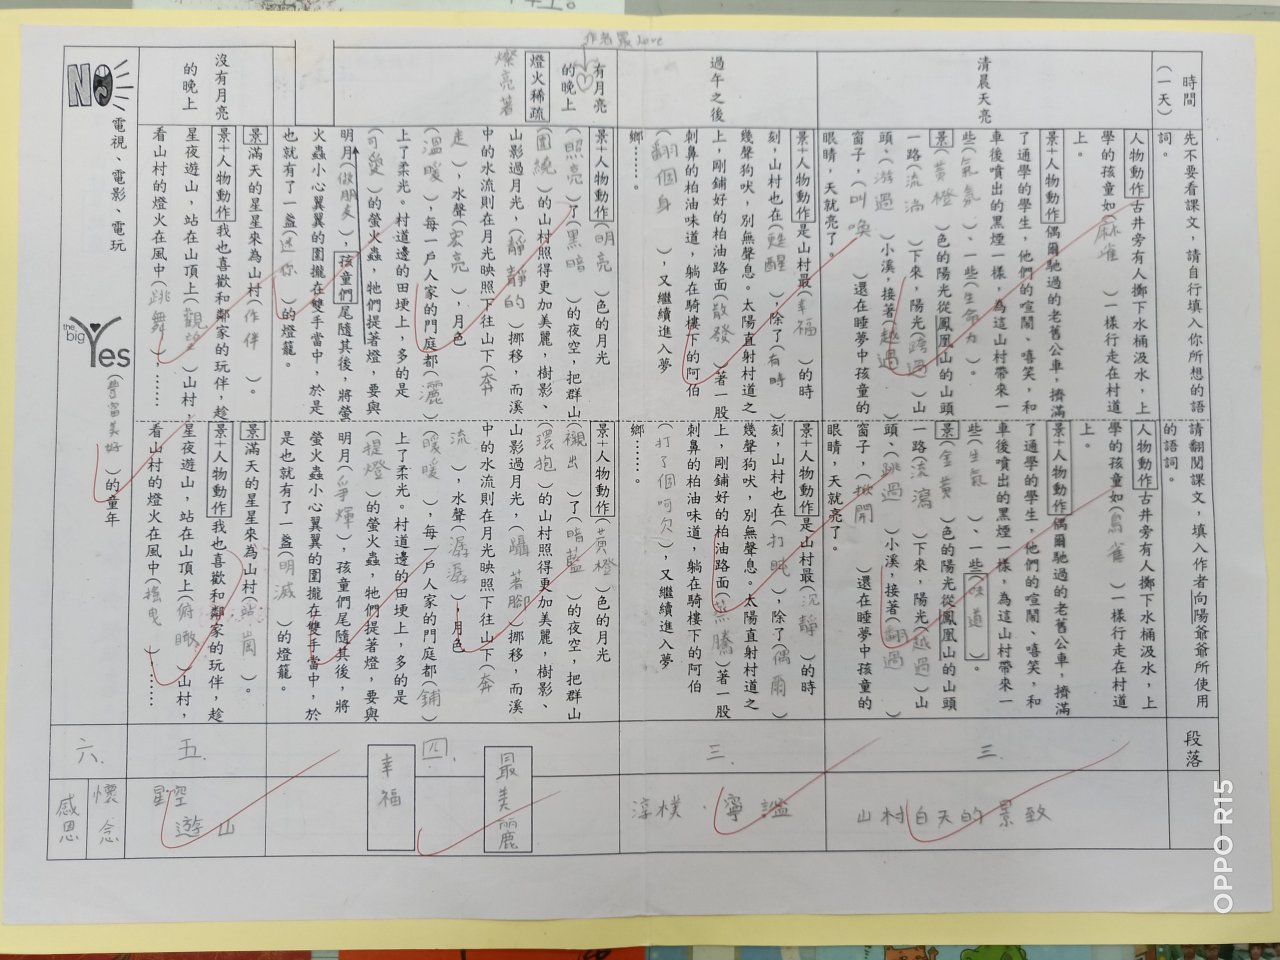 作者最Love
時間(一天)
先不要看課文，請自行填入你所想的語詞。
請翻閱課文，填入作者向陽爺爺所使用的語詞。
段落
清晨天亮
人物動作 古井旁有人擲下水桶汲水，上
學的孩童如(麻雀)一樣行走在村道
上。
景+人物動作 偶爾馳過的老舊公車，擠滿
了通學的學生，他們的喧鬧、嘻笑，和
車後噴出的黑煙一樣，為這山村帶來一
些(氣氛)、一些(生命力)。
景(黃橙)色的陽光從鳳凰山的山頭
一路(流淌)下來，陽光(跨過)山
頭，(游過)小溪，接著(越過)
窗子，(叫喚)還在睡夢中孩童的
眼睛，天就亮了。
人物動作 古井旁有人擲下水桶汲水，上
學的孩童如(鳥雀)一樣行走在村道
上。
景+人物動作 偶爾馳過的老舊公車，擠滿
了通學的學生，他們的喧鬧、嘻笑，和
車後噴出的黑煙一樣，為這山村帶來一
些(生氣)、一些(味道)。
景(金黃)色的陽光從鳳凰山的山頭
一路(流瀉)下來，陽光(越過)山
頭，(跳過)小溪，接著(翻過)
窗子，(掀開)還在睡夢中孩童的
眼睛，天就亮了。
三.
山村白天的景致
過午之後
景+人物動作 是山村最(幸福)的時
刻，山村也在(甦醒)，除了(有時)
幾聲狗吠，別無聲息。太陽直射村道之
上，剛鋪好的柏油路面(散發)著一股
刺鼻的柏油味道，躺在騎樓下的阿伯
(翻個身)，又繼續進入夢
鄉……。
景+人物動作 是山村最(沉靜)的時
刻，山村也在(打盹)，除了(偶爾)
幾聲狗吠，別無聲息。太陽直射村道之
上，剛鋪好的柏油路面(蒸騰)著一股
刺鼻的柏油味道，躺在騎樓下的阿伯
(打了個呵欠)，又繼續進入夢
鄉……。
三.
淳樸、寧謐
有月亮的晚上
燈火稀疏
燦亮著
景+人物動作(明亮)色的月光
(照亮)了(黑暗)的夜空，把群山
(圍繞)的山村照得更加美麗，樹影、
山影過月光，(靜靜的)挪移，而溪
中的水流則在月光映照下往山下(奔
走)，水聲(宏亮)，月色
(溫暖)，每一戶人家的門庭都(灑)
上了柔光。村道邊的田埂上，多的是
(可愛)的螢火蟲，牠們提著燈，要與
明月(做朋友)，孩童們尾隨其後，將螢
火蟲小心翼翼的圍攏在雙手當中，於是
也就有了一盞(迷你)的燈籠。
景+人物動作(黃橙)色的月光
(襯出)了(暗藍)的夜空，把群山
(環抱)的山村照得更加美麗，樹影、
山影過月光，(躡著腳)挪移，而溪
中的水流則在月光映照下往山下(奔
流)，水聲(潺潺)，月色
(暖暖)，每一戶人家的門庭都(鋪)
上了柔光。村道邊的田埂上，多的是
(提燈)的螢火蟲，牠們提著燈，要與
明月(爭輝)，孩童們尾隨其後，將
螢火蟲小心翼翼的圍攏在雙手當中，於
是也就有了一盞(明滅)的燈籠。
四.
最美麗
幸福
沒有月亮的晚上
景 滿天的星星來為山村(作伴)。
景+人物動作 我也喜歡和鄰家的玩伴，趁
星夜遊山，站在山頂上(觀望)山村，
看山村的燈火在風中(跳舞)，……
景 滿天的星星來為山村(站崗)。
景+人物動作 我也喜歡和鄰家的玩伴，趁
星夜遊山，站在山頂上(俯瞰)山村，
看山村的燈火在風中(搖曳)……
五.
星空遊山
NO
電視、電影、電玩
the big Yes
(豐富美好)的童年
六.
懷念
感恩
OPPO R15